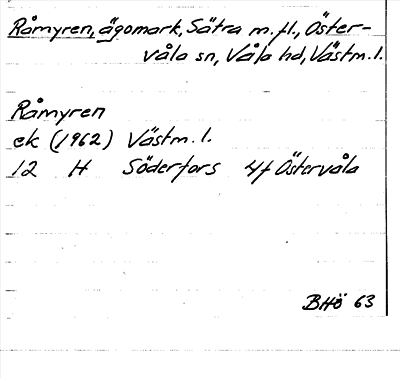 Råmyren, ägomark, Sätra m. fl., Öster-
våla sn, Våla hd, Västm. l.
Råmyren
ek (1962) Västm. l.
12 H Söderfors 4f Östervåla
BHö 63